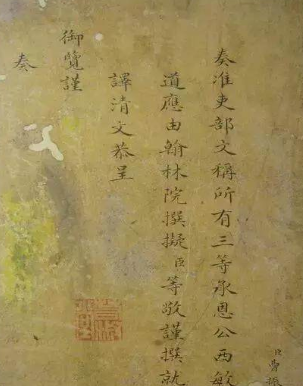 奏准吏部文稱所有三等承恩公西敏
道應由翰林院撰擬臣等敬謹撰就
譯清文恭呈
御覽謹
奏